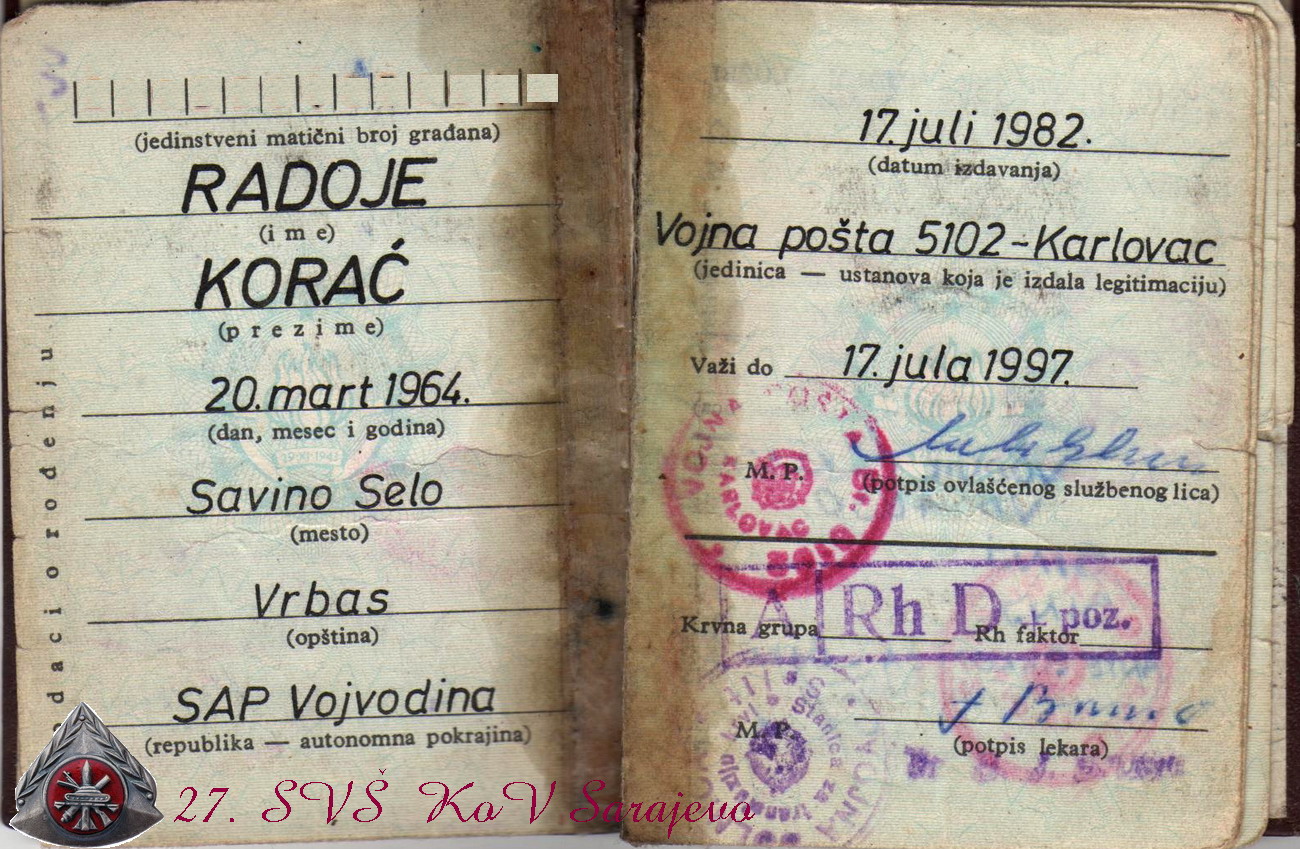 (jedinstveni matični broj građana)
RADOJE
(i m e)
KORAĆ
(p r e z i m e)
20. mart 1964.
(dan, mesec i godina)
Savino Selo
(mesto)
Vrbas
(opština)
SAP Vojvodina
(republika — autonomna pokrajina)
podaci o rođenju
17. juli 1982.
(datum izdavanja)
Vojna pošta 5102-Karlovac
(jedinica — ustanova koja je izdala legitimaciju)
Važi do 17. jula 1997.
M. P.
(potpis ovlašćenog službenog lica)
VOJNA POŠTA BR. 5102
KARLOVAC
A Rh D + poz.
Krvna grupa Rh faktor
M. P.
(potpis lekara)
Stanica za
27. SVŠ KoV Sarajevo